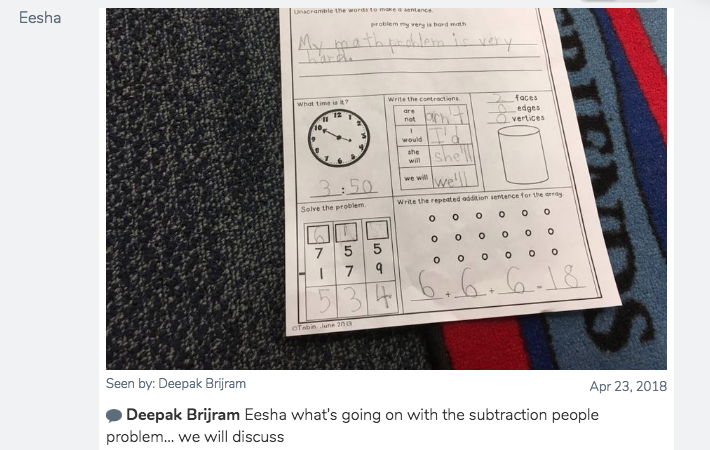 Eesha
Unscramble the words to make a sentence.
problem my very is hard math
My math problem is very
hard.
What time is it?
12
1
2
10
11
3 : 50
Write the contractions.
are
not
arn't
I
would
I'd
she
will
she'll
we will
we'll
2 faces
0 edges
0 vertices
Solve the problem.
7 5 5
- 1 7 9
5 3 4
Write the repeated addition sentence for the array.
6 + 6 + 6 = 18
©Tobin June 2013
IENDS
Seen by: Deepak Brijram
Apr 23, 2018
Deepak Brijram Eesha what's going on with the subtraction people
problem... we will discuss